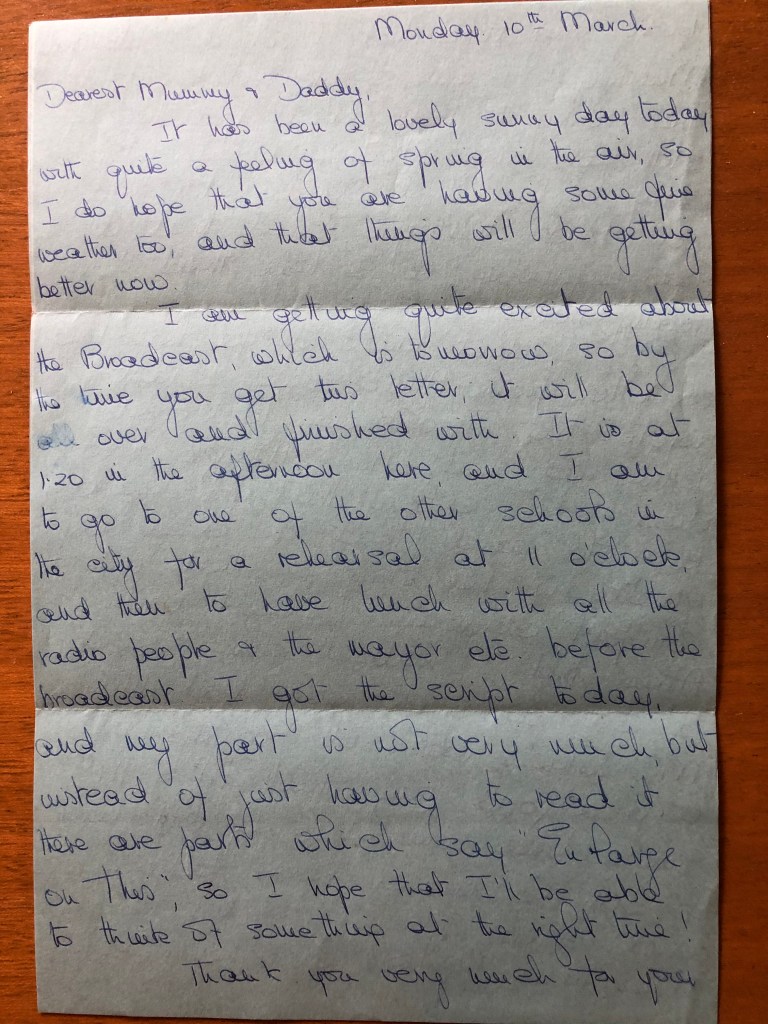 Monday 10th March.
Dearest Mummy & Daddy,
It has been a lovely sunny day today
with quite a feeling of spring in the air, so
I do hope that you are having some fine
weather too, and that things will be getting
better now.
I am getting quite excited about
the Broadcast, which is tomorrow, so by
the time you get this letter, it will be
all over and finished with. It is at
1.20 in the afternoon here, and I am
to go to one of the other schools in
the city for a rehearsal at 11 o'clock,
and then to have lunch with all the
radio people & the mayor etc. before the
broadcast I got the script today,
and my part is not very much, but
instead of just having to read it
there are parts which say "Enlarge
on This", so I hope that I'll be able
to think of something at the right time!
Thank you very much for your